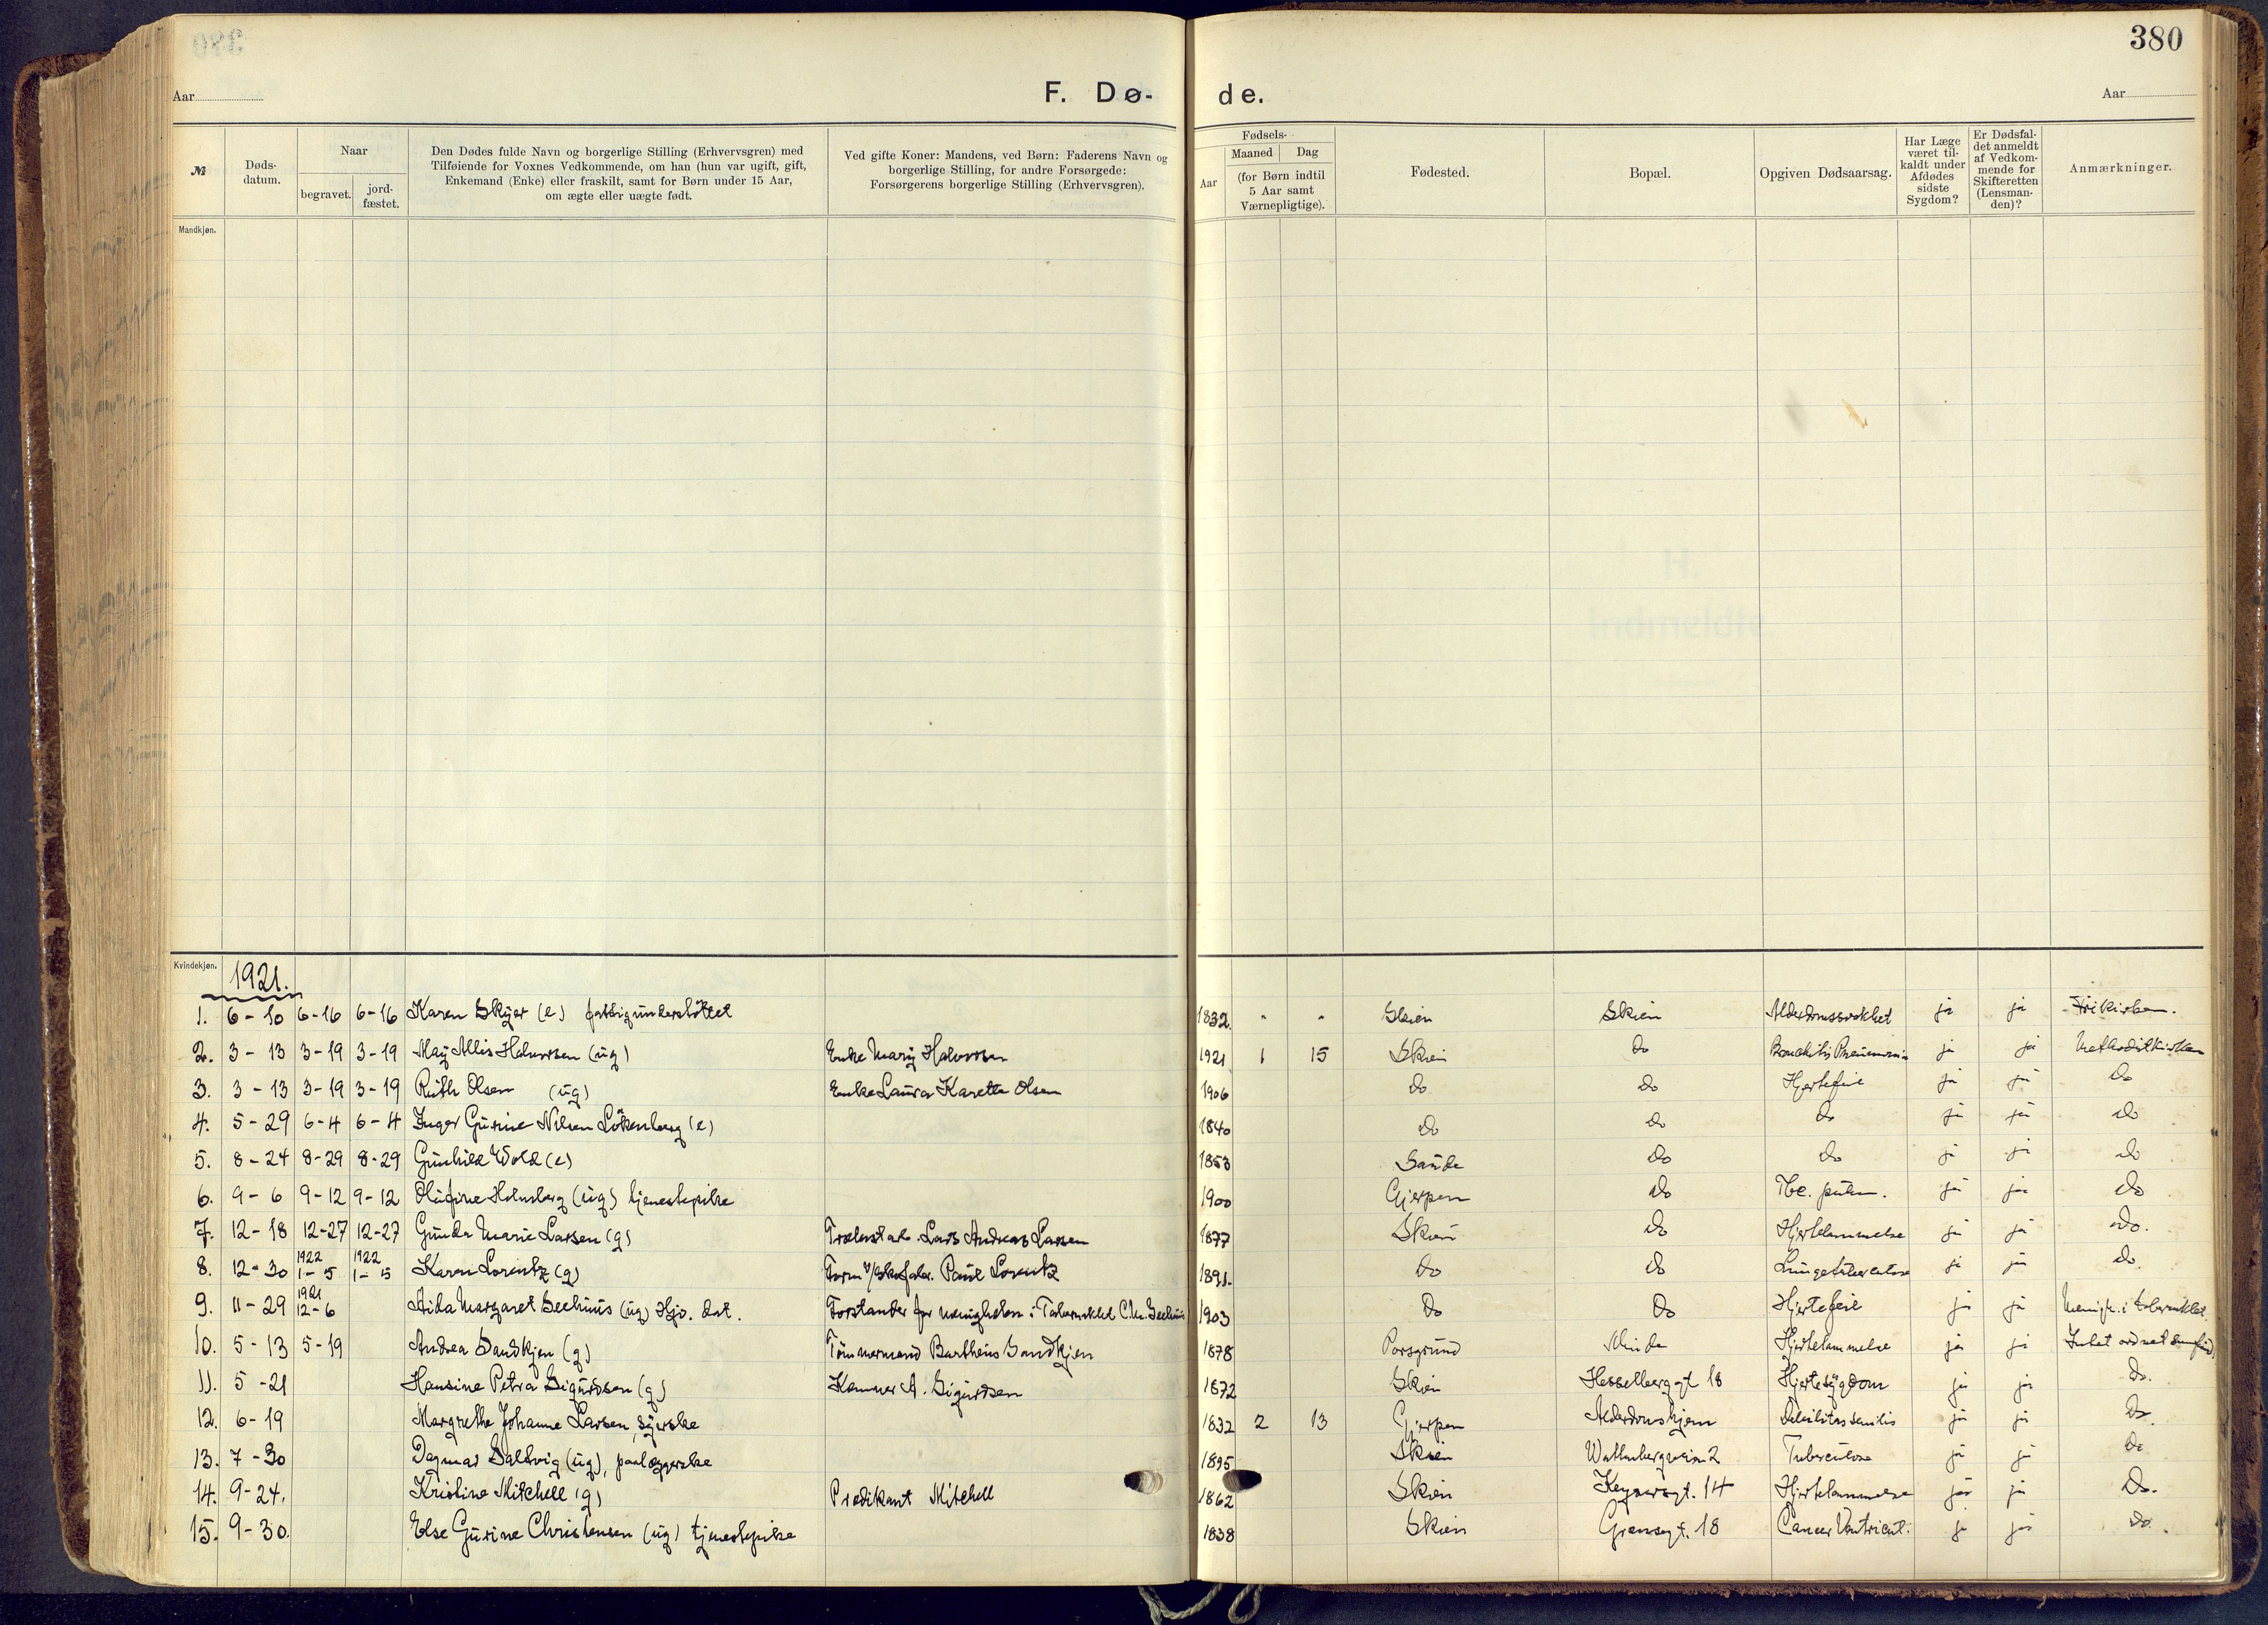 380
Aar
F. Dø-
de.
Aar
№
Døds-datum.
Naar
begravet.
jord-fæstet.
Den Dødes fulde Navn og borgerlige Stilling (Erhvervsgren) med
Tilføiende for Voxnes Vedkommende, om han (hun var ugift, gift,
Enkemand (Enke) eller fraskilt, samt for Børn under 15 Aar,
om ægte eller uægte født.
Ved gifte Koner: Mandens, ved Børn: Faderens Navn og
borgerlige Stilling, for andre Forsørgede:
Forsørgerens borgerlige Stilling (Erhvervsgren).
Fødsels-
Aar
Maaned
Dag
(for Børn indtil
5 Aar samt
Værnepligtige).
Fødested.
Bopæl.
Opgiven Dødsaarsag.
Har Læge
været til-
kaldt under
Afdødes
sidste
Sygdom?
Er Dødsfal-
det anmeldt
af Vedkom-
mende for
Skifteretten
(Lensman-
den)?
Anmærkninger.
Mandkjøn.
Kvindekjøn.
1921.
1. 6-10 6-16 6-16 Karen Skyer (e) fattigunderstöttet 1832. " " Skien Skien Alderdomssvakhet ja ja Frikirken.
2. 3-13 3-19 3-19 May Allis Halvorsen (ug) Enke Mary Halvorsen 1921 1 15 Skien Do ja ja Methodistkirken
3. 3-13 3-19 3-19 Ruth Olsen (ug) Enke Laura Karette Olsen 1906 Do Do Hjertefeil ja ja Do
4. 5-29 6-4 6-4 Inger Gurine Nilsen Lökenberg (e) 1840 Do Do Do ja ja Do
5. 8-24 8-29 8-29 Gunhild Wold (e) 1853 Saude Do Do ja ja Do
6. 9-6 9-12 9-12 Olufine Holmberg (ug) tjenestepike 1900 Gjerpen Do Tbc. pulm. ja ja Do
7. 12-18 12-27 12-27 Gunda Marie Larsen (g) Lars Andreas Larsen 1877 Skien Do Hjertelammelse ja ja Do.
8. 12-30 1922 1-5 1922 1-5 Karen Lorentz (g) Form. v/Skofabr. Paul Lorentz 1891. Do Do Lungetuberculose ja ja do.
9. 11-29 1921 12-6 Aida Margaret Seehuus (ug) Hjv. dat. Forstander for menigheten i Tabernaklet C.M. Seehuus 1903 Do Do Hjertefeil ja ja Menigh. i tabernaklet.
10. 5-13 5-19 Andrea Sandkjen (g) Tömmermand Bartheus Sandkjen 1878 Porsgrund Minde Hjertelammelse ja ja Intet ordnet samfund
11. 5-21 Hansine Petra Sigurdsen (g) Kemner A. Sigurdsen 1872 Skien Hesselberggt 18 Hjertesygdom ja ja Do.
12. 6-19 Margrethe Johanne Larsen, syerske 1832 2 13 Gjerpen Alderdomshjem Debilitas senilis ja ja Do.
13. 7-30 Dagmar Saltvig (ug), paalæggerske 1895 Skien Tuberculose ja ja Do
14. 9-24. Kristine Mitchell (g) Predikant Mitchell 1862 Skien Keysersgt. 14 Hjertelammelse ja ja Do.
15. 9-30. Else Gurine Christensen (ug) tjenestepike 1838 Skien Grensegt. 18 Cancer Ventricul. ja ja Do.